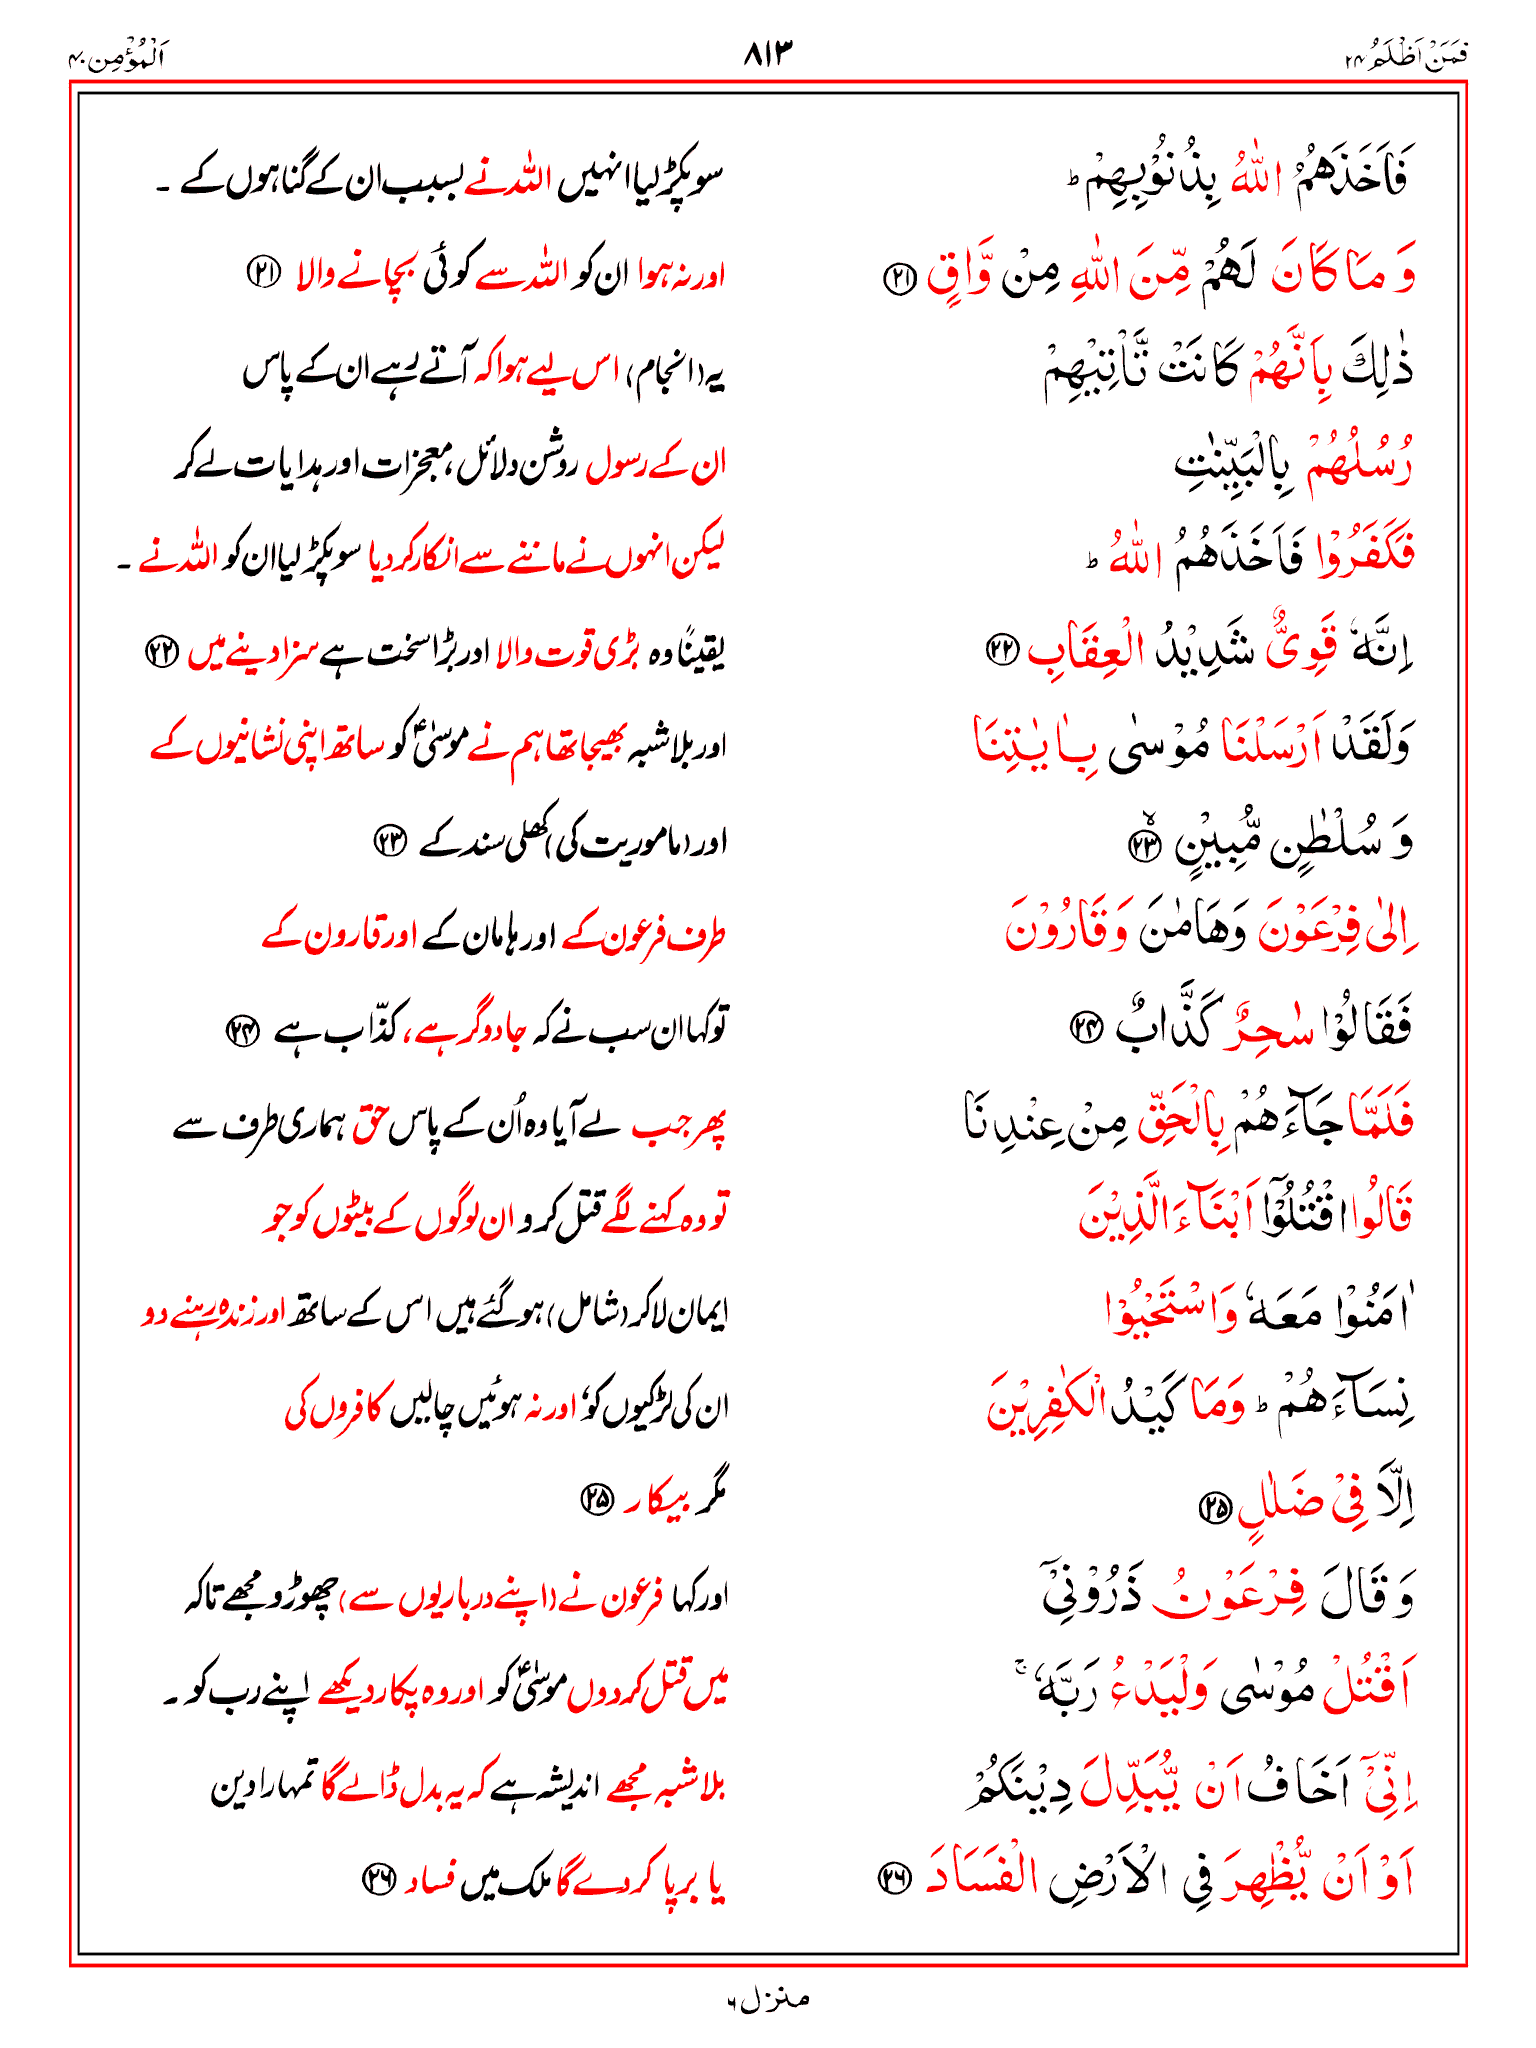 فَمَنْ اَظْلَمُ ۲۴
۸۱۳
اَلْمُؤْمِن ۴۰
فَاَخَذَهُمُ اللّٰهُ بِذُنُوْبِهِمْ ؕ
سو پکڑ لیا انہیں اللہ نے بسبب ان کے گناہوں کے ۔
وَ مَا كَانَ لَهُمْ مِّنَ اللّٰهِ مِنْ وَّاقٍ ۲۱
اور نہ ہوا ان کو اللہ سے کوئی بچانے والا ۲۱
ذٰلِكَ بِاَنَّهُمْ كَانَتْ تَّاْتِيْهِمْ
یہ (انجام) اس لیے ہوا کہ آتے رہے ان کے پاس
رُسُلُهُمْ بِالْبَيِّنٰتِ
ان کے رسول روشن دلائل، معجزات اور ہدایات لے کر
فَكَفَرُوْا فَاَخَذَهُمُ اللّٰهُ ؕ
لیکن انہوں نے ماننے سے انکار کر دیا سو پکڑ لیا ان کو اللہ نے ۔
اِنَّهٗ قَوِيٌّ شَدِيْدُ الْعِقَابِ ۲۲
یقیناً وہ بڑی قوت والا اور بڑا سخت ہے سزا دینے میں ۲۲
وَلَقَدْ اَرْسَلْنَا مُوْسٰى بِاٰيٰتِنَا
اور بلاشبہ بھیجا تھا ہم نے موسیٰؑ کو ساتھ اپنی نشانیوں کے
وَ سُلْطٰنٍ مُّبِيْنٍ ۙ۲۳
اور (ماموریت کی) کھلی سند کے ۲۳
اِلٰى فِرْعَوْنَ وَهَامٰنَ وَقَارُوْنَ
طرف فرعون کے اور ہامان کے اور قارون کے
فَقَالُوْا سٰحِرٌ كَذَّابٌ ۲۴
تو کہا ان سب نے کہ جادوگر ہے، کذّاب ہے ۲۴
فَلَمَّا جَآءَهُمْ بِالْحَقِّ مِنْ عِنْدِنَا
پھر جب لے آیا وہ اُن کے پاس حق ہماری طرف سے
قَالُوا اقْتُلُوْٓا اَبْنَآءَ الَّذِيْنَ
تو وہ کہنے لگے قتل کرو ان لوگوں کے بیٹوں کو جو
اٰمَنُوْا مَعَهٗ وَاسْتَحْيُوْا
ایمان لا کر (شامل) ہو گئے ہیں اس کے ساتھ اور زندہ رہنے دو
نِسَآءَهُمْ ؕ وَمَا كَيْدُ الْكٰفِرِيْنَ
ان کی لڑکیوں کو، اور نہ ہوئیں چالیں کافروں کی
اِلَّا فِيْ ضَلٰلٍ ۲۵
مگر بیکار ۲۵
وَ قَالَ فِرْعَوْنُ ذَرُوْنِيْٓ
اور کہا فرعون نے (اپنے درباریوں سے) چھوڑو مجھے تاکہ
اَقْتُلْ مُوْسٰى وَلْيَدْعُ رَبَّهٗ ۚ
میں قتل کر دوں موسیٰؑ کو اور وہ پکار دیکھے اپنے رب کو ۔
اِنِّيْٓ اَخَافُ اَنْ يُّبَدِّلَ دِيْنَكُمْ
بلاشبہ مجھے اندیشہ ہے کہ یہ بدل ڈالے گا تمہارا دین
اَوْ اَنْ يُّظْهِرَ فِي الْاَرْضِ الْفَسَادَ ۲۶
یا برپا کر دے گا ملک میں فساد ۲۶
منزل ۶